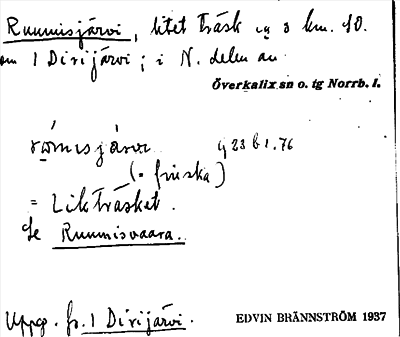 Ruumisjärvi, litet träsk c:a 3 km. SO.
om 1 Dirijärvi; i N. delen av
Överkalix sn o. tg Norrb. l.
rωmisjärvi 4 23 b 1.76
(= finska)
= Likträsket.
Se Ruumisvaara.
Uppg. fr. 1 Dirijärvi.
EDVIN BRÄNNSTRÖM 1937